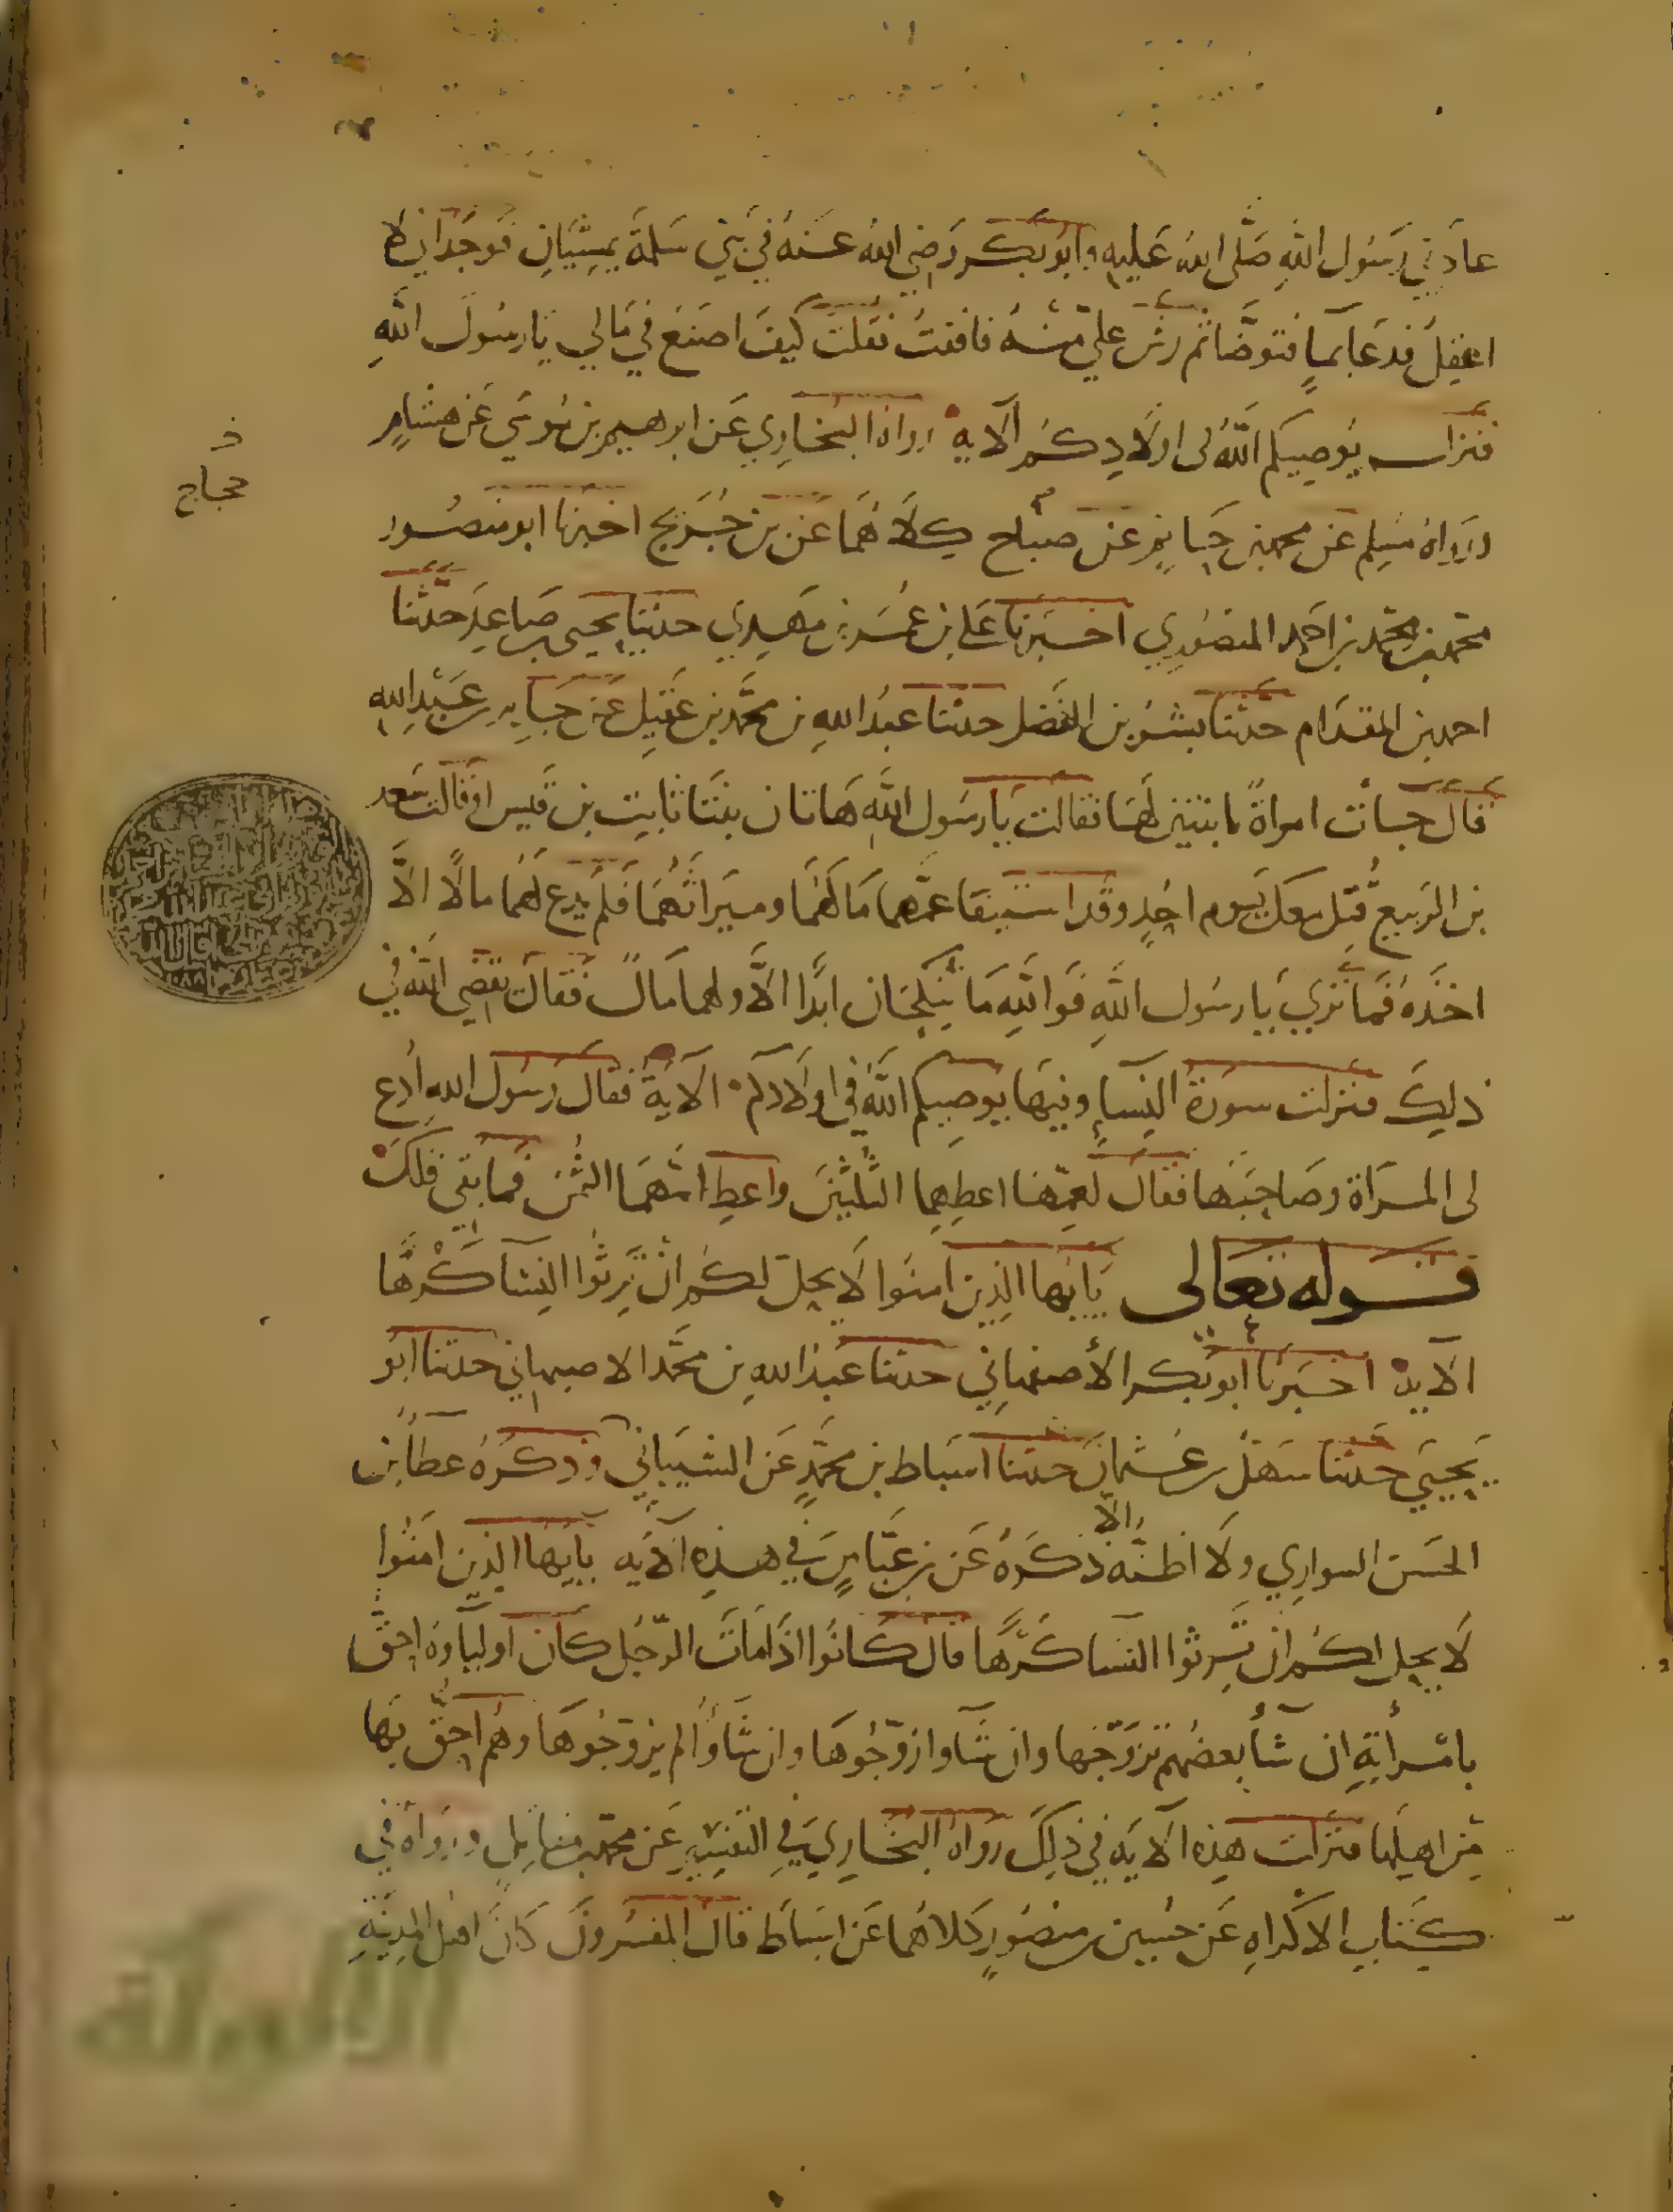 عادني رسول الله صَلَّى الله عَليهِ وابو بكر رَضي الله عنهُ في بني سَلمةَ يمشيَانِ فوجدَاني لا
اعقِلُ فدعَا بمآءٍ فتوضَّا ثم رش علي منه فافقتُ فقلت كيفَ اصنَعُ في مَالي يَا رسُولَ اللَّهِ
فنزلت يُوصِيكم اللَّهُ في اولَادِكُم الآية رواهُ البُخَاري عَن ابرهيم بن مُوسَى عَن هشامٍ
ورَوَاهُ مُسلِم عَن محمد بن حَاتِمٍ عَن حباح كلاهُمَا عَن بن جُرَيج اخبَرنا ابو منصُور
حجاج
محمد بن محمّد بن احمد المنصُوري اخبَرنا علي بن عُمَر بن مَهدي حدثنا يحيى بن صَاعِد حدَّثنا
احمد بن المقدَام حدَّثنا بشرُ بن الفضل حدثنا عبدُ اللهِ بن محمَّد بن عَقيل عَن جَابِر بن عَبدِ اللهِ
قالَ جآت امراةً بابنتين لهَا فقالت يَا رسَول اللَّهِ هَاتان بنتَا ثابت بن قَيس او قالت سَعد
بن الربيع قُتِل معكَ يَوم احُدٍ وقد استَبقا عمّهما مَالهُمَا وميرَاثَهُمَا فلَم يدع لهُما مالًا الاَّ
اخَذهُ فمَا تَرَي يَا رسُول اللَّهِ فوَ اللَّهِ مَا يُنكحَان ابدًا الاَّ ولهما مَالٌ فقالَ يقضي اللَّه في
ذلِكَ فنزلت سورَةُ النِسآءِ وفيهَا يُوصِيكم اللَّهُ في اولَادكم الآيةُ فقالَ رسُول اللهِ ادع
لي المرَاة وصَاحِبَهَا فقالَ لعمِّهمَا اعطِهِما الثُلُثَين واعطِ امّهمَا الثُمنَ فما بقي فلَكَ
قوله تعالى يَا ايُّها الذِين امنُوا لَا يحِلّ لكُم ان تَرثُوا النِسَآ كَرْهًا
الآية اخبَرنَا ابو بكر الأصفهَاني حدثنا عَبد اللهِ بن محمَّد الاصبهاني حدثنا ابُو
يَحيَي حَدثنا سَهلُ بن عُثمانَ حدثنا اسبَاط بن محمَّدٍ عَن الشيبَاني وذكَرَهُ عَطآ بن
الحسَن السواري ولَا اظنُّه الاَّ ذكَرهُ عَن بن عَبَّاسٍ في هذِهِ الآيَه يَا ايّهَا الذِين امَنُوا
لَا يحِل لكُم ان تَرِثوا النسَا كَرْهًا قال كانُوا اذَا مَاتَ الرّجُل كان اوليآوهُ احَقَّ
بامرأتهِ ان شآءَ بعضُهم تزوّجَها وان شآوا زوّجُوهَا وان شَآوا لم يزوجُوهَا وهُم احَقُّ بهَا
مِن اهلِهَا فنزلت هذِه الآيَه في ذلِكَ رواهُ البخَارِي في التفسِيرِ عَن محمّد بن مقاتِلٍ ورَوَاهُ في
كتاب الاكرَاهِ عَن حُسين بن منصُورٍ كلاهُما عَن اسبَاط قالَ المفسّرونَ كانَ اهل المدينَةِ
الألوكة